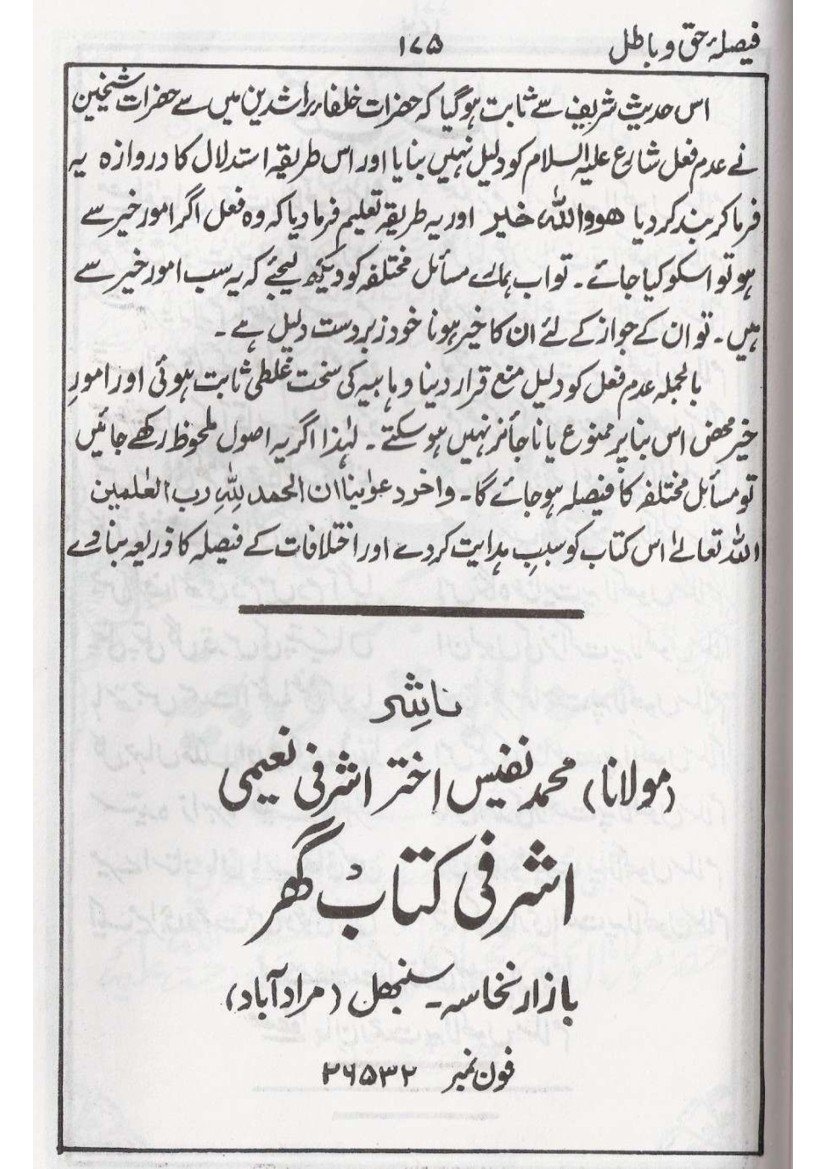 فیصلۂ حق و باطل ۱۷۵
اس حدیث شریف سے ثابت ہوگیا کہ حضرات خلفاء راشدین میں سے حضرات شیخین
نے عدم فعل شارع علیہ السلام کو دلیل نہیں بنایا اور اس طریقہ استدلال کا دروازہ یہ
فرما کر بند کر دیا ھو واللہ خیر اور یہ طریقہ تعلیم فرما دیا کہ وہ فعل اگر امور خیر سے
ہو تو اسکو کیا جائے۔ تو اب ہمارے مسائل مختلفہ کو دیکھ لیجئے کہ یہ سب امور خیر سے
ہیں۔ تو ان کے جواز کے لئے ان کا خیر ہونا خود زبردست دلیل ہے۔
بالجملہ عدم فعل کو دلیل منع قرار دینا وہابیہ کی سخت غلطی ثابت ہوئی اور امورِ
خیر محض اس بنا پر ممنوع یا ناجائز نہیں ہو سکتے۔ لہٰذا اگر یہ اصول ملحوظ رکھے جائیں
تو مسائل مختلفہ کا فیصلہ ہو جائے گا۔ واٰخر دعوٰینا ان الحمد للہِ رب العٰلمین
اللہ تعالےٰ اس کتاب کو سببِ ہدایت کر دے اور اختلافات کے فیصلہ کا ذریعہ بنا دے
ناشِر
(مولانا) محمد نفیس اختر اشرفی نعیمی
اشرفی کتاب گھر
بازار نخاسہ۔ سنبھل (مراد آباد)
فون نمبر ۲۶۵۳۲